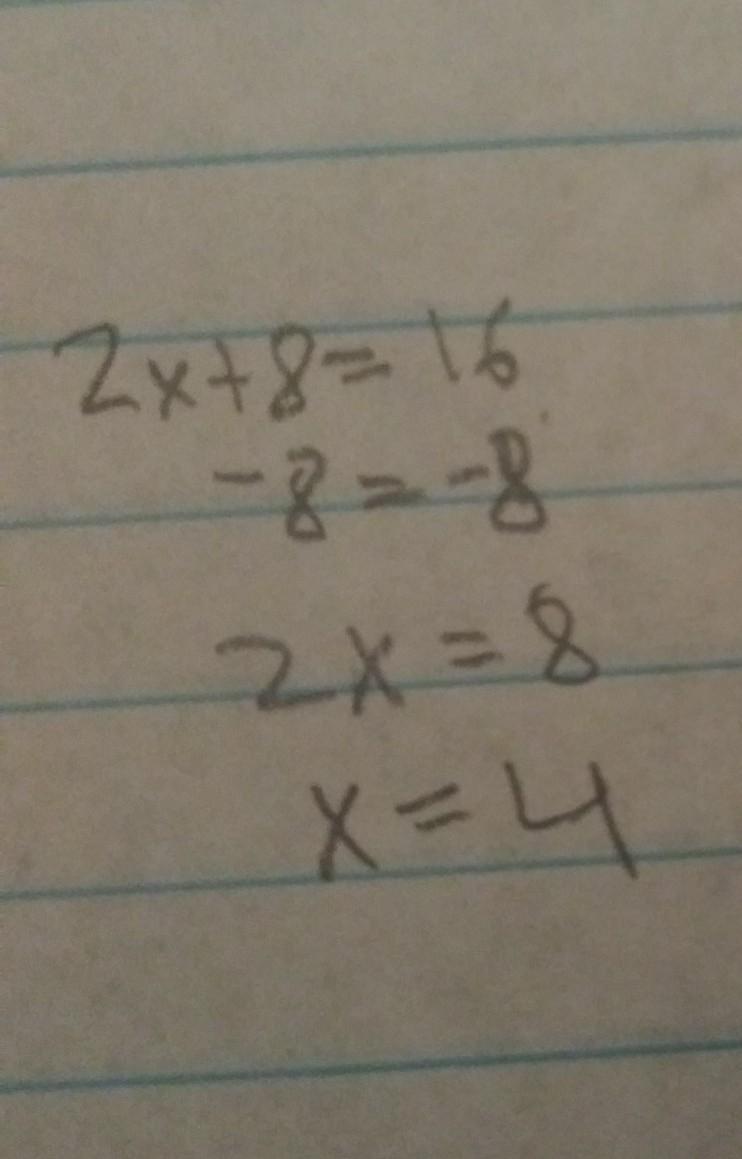 2x+8=16
-8=-8
2x=8
x=4